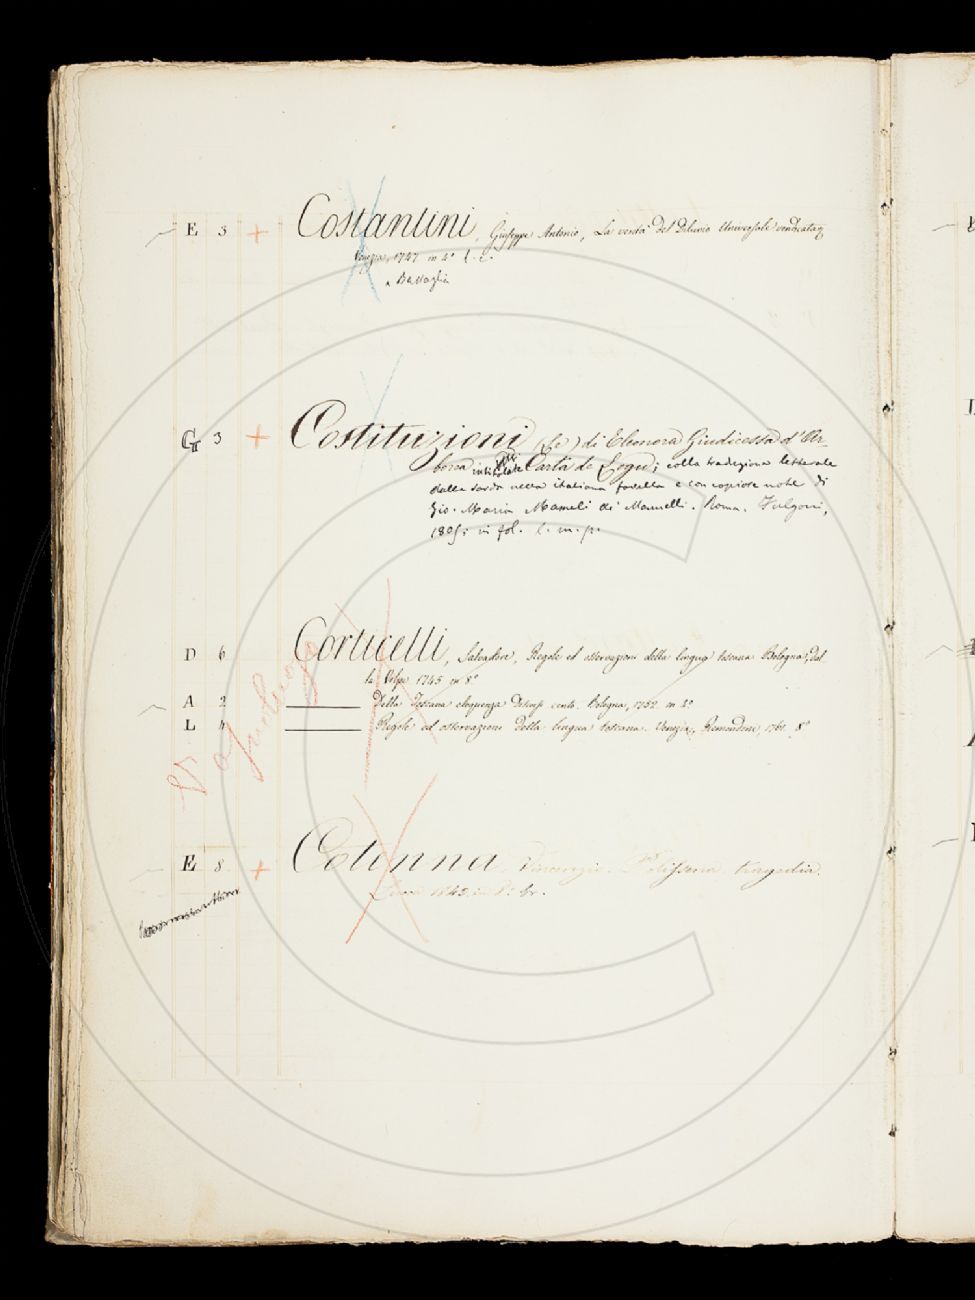 E 3 + Costantini, Giuseppe Antonio, La verità del Diluvio Universale vendicata
Venezia, 1747 in 4° l. c.
a Battaglia
G 3 + Costituzioni (Le) di Eleonora Giudicessa d'Ar-
borea intitolate Carta de Logu; colla traduzione letterale
dalla sarda nella italiana favella e con copiose note di
Gio. Maria Mameli de' Mannelli. Roma. Fulgoni,
1805; in fol. l. m. p.
D 6 Corticelli, Salvadore, Regole ed osservazioni della lingua toscana Bologna, dal
la Volpe 1745 in 8°
A 2 ——— Della Toscana eloquenza Discorsi cento. Bologna, 1752 in 4°
L 4 ——— Regole ed osservazioni della lingua toscana. Venezia, Remondini, 1761. 8°
E 8 + Cotenna Vincenzio. Polissena tragedia.
Lucca 1843. in 8° br.